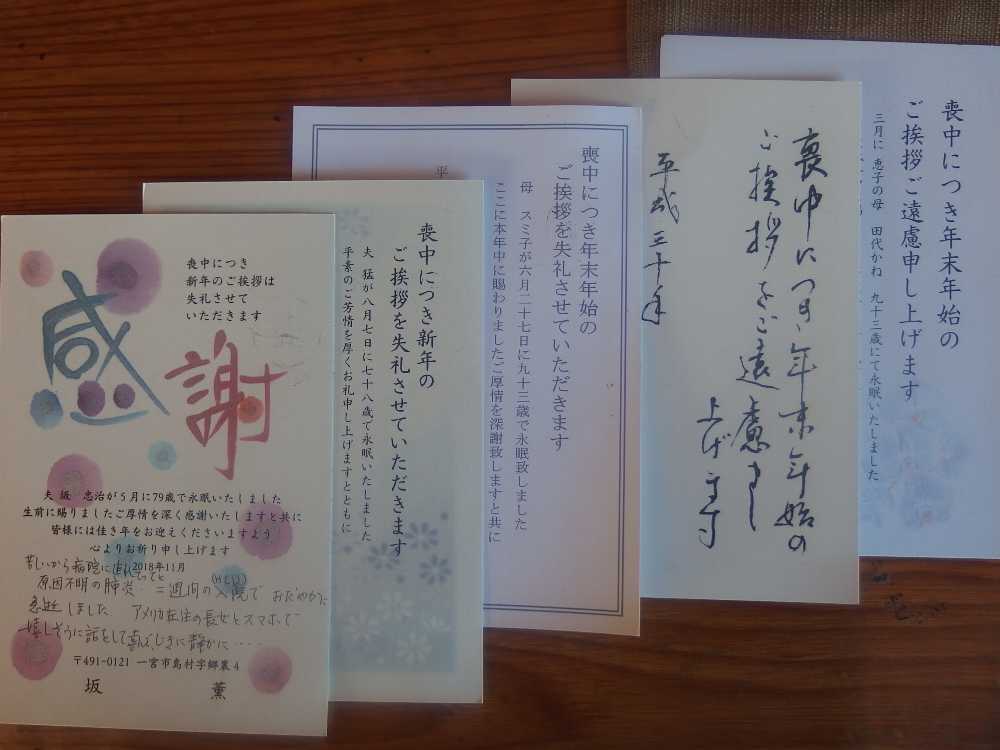 喪中につき年末年始の
ご挨拶ご遠慮申し上げます
三月に 恵子の母 田代かね 九十三歳にて永眠いたしました
喪中につき年末年始の
ご挨拶をご遠慮申し
上げます
平成三十年
喪中につき年末年始の
ご挨拶を失礼させていただきます
母 スミ子が六月二十七日に九十三歳で永眠致しました
ここに本年中に賜わりましたご厚情を深謝致しますと共に
平
喪中につき新年の
ご挨拶を失礼させていただきます
夫 猛が八月七日に七十八歳で永眠いたしました
平素のご芳情を厚くお礼申し上げますとともに
喪中につき
新年のご挨拶は
失礼させて
いただきます
感謝
夫 坂 忠治が5月に79歳で永眠いたしました
生前に賜りましたご厚情を深く感謝いたしますと共に
皆様には佳き年をお迎えくださいますよう
心よりお祈り申し上げます
2018年11月
苦しいから病院に連れてってと
原因不明の肺炎 二週間の入院で おだやかに
急逝しました アメリカ在住の長女とスマホで
嬉しそうに話をして 静かに‥‥
〒491-0121 一宮市島村字郷裏4
坂 薫